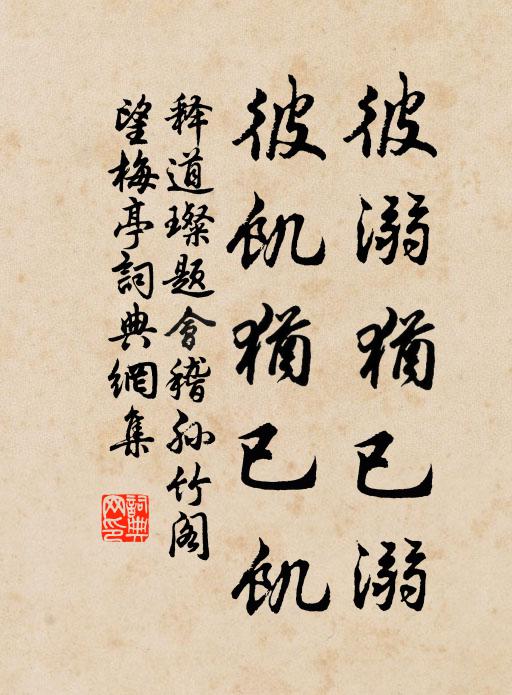 彼溺猶已溺
彼飢猶已飢
释道璨题會稽孙竹阁
望梅亭詞典網集
詞典網印